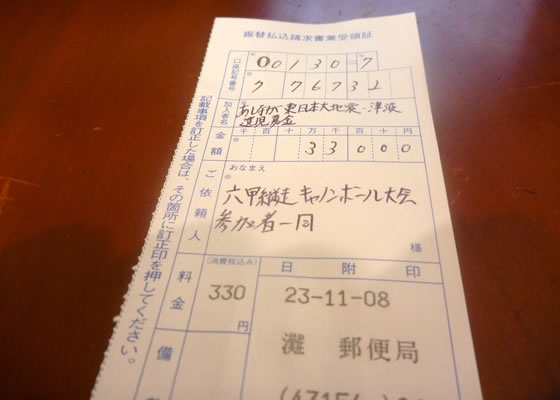 振替払込請求書兼受領証
口座記号番号
00130=7
776732
加入者名
あしなが東日本大地震・津波
遺児募金
金額
千百十万千百十円
33000
おなまえ
ご依頼人
六甲縦走キャノンボール大会
参加者一同
様
料金
(消費税込み)
330
円
日附印
23-11-08
灘 郵便局
備
記載事項を訂正した場合は、その箇所に訂正印を押してください。